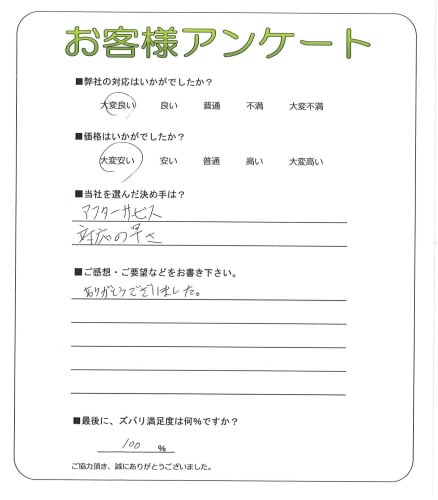 お客様アンケート
■弊社の対応はいかがでしたか？
大変良い 良い 普通 不満 大変不満
■価格はいかがでしたか？
大変安い 安い 普通 高い 大変高い
■当社を選んだ決め手は？
アフターサービス
対応の早さ
■ご感想・ご要望などをお書き下さい。
ありがとうございました。
■最後に、ズバリ満足度は何％ですか？
100 ％
ご協力頂き、誠にありがとうございました。